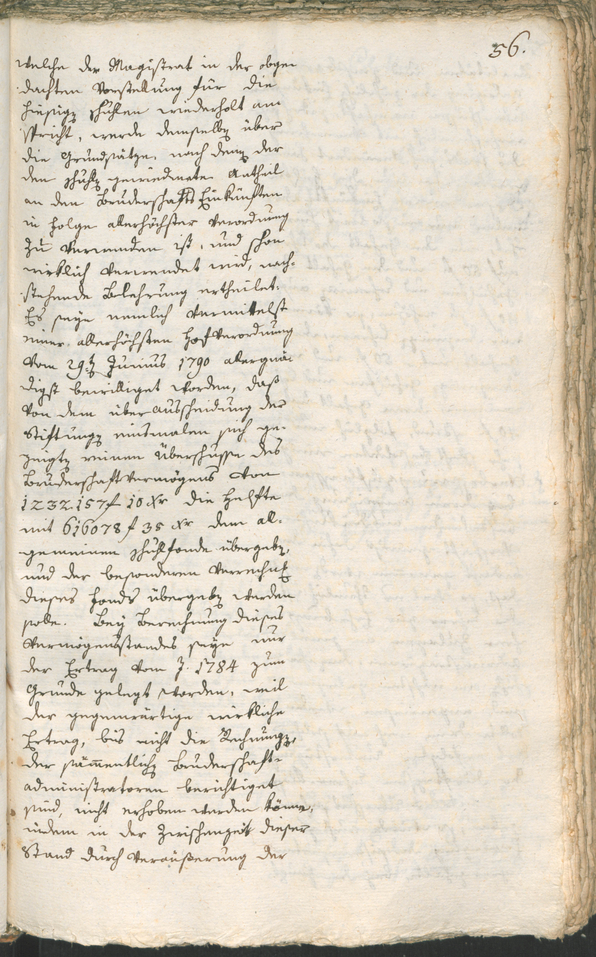 56.
welche der Magistrat in der obge-
dachten Vorstellung für die
hiesigen Schulen wiederholt an
spricht, werde demselben über
die Grundsätze, nach denen der
den Schulen gewiedmete Antheil
an den Bruderschafts Einkünften
in Folge allerhöchster Verordnung
zu verwenden ist, und schon
wirklich verwendet wird, nach-
stehende Belehrung ertheilet:
Es seye nemlich vermittelst
einer allerhöchsten Hofverordnung
vom 29ten Junius 1790 allergnä-
digst bewilliget worden, daß
von dem über Ausscheidung der
Stiftungen einsmalen sich ge-
zeigten reinen Überschusse des
Bruderschaftvermögens von
1232.157 f 10 xr die Helfte
mit 616078 f 35 xr dem al-
gemeinen Schulfonde übergeben,
und der besonderen Verrechnung
dieses Fonds übergeben werden
solle. Bey Berechnung dieses
Vermögensstandes seye nur
der Ertrag vom J. 1784 zum
Grunde gelegt worden, weil
der gegenwärtige wirkliche
Ertrag, bis nicht die Rechnungen
der sämmentlichen Bruderschafts-
administratoren berichtiget
sind, nicht erhoben werden könne,
indem in der Zwischenzeit dieser
Stand durch Veräußerung der